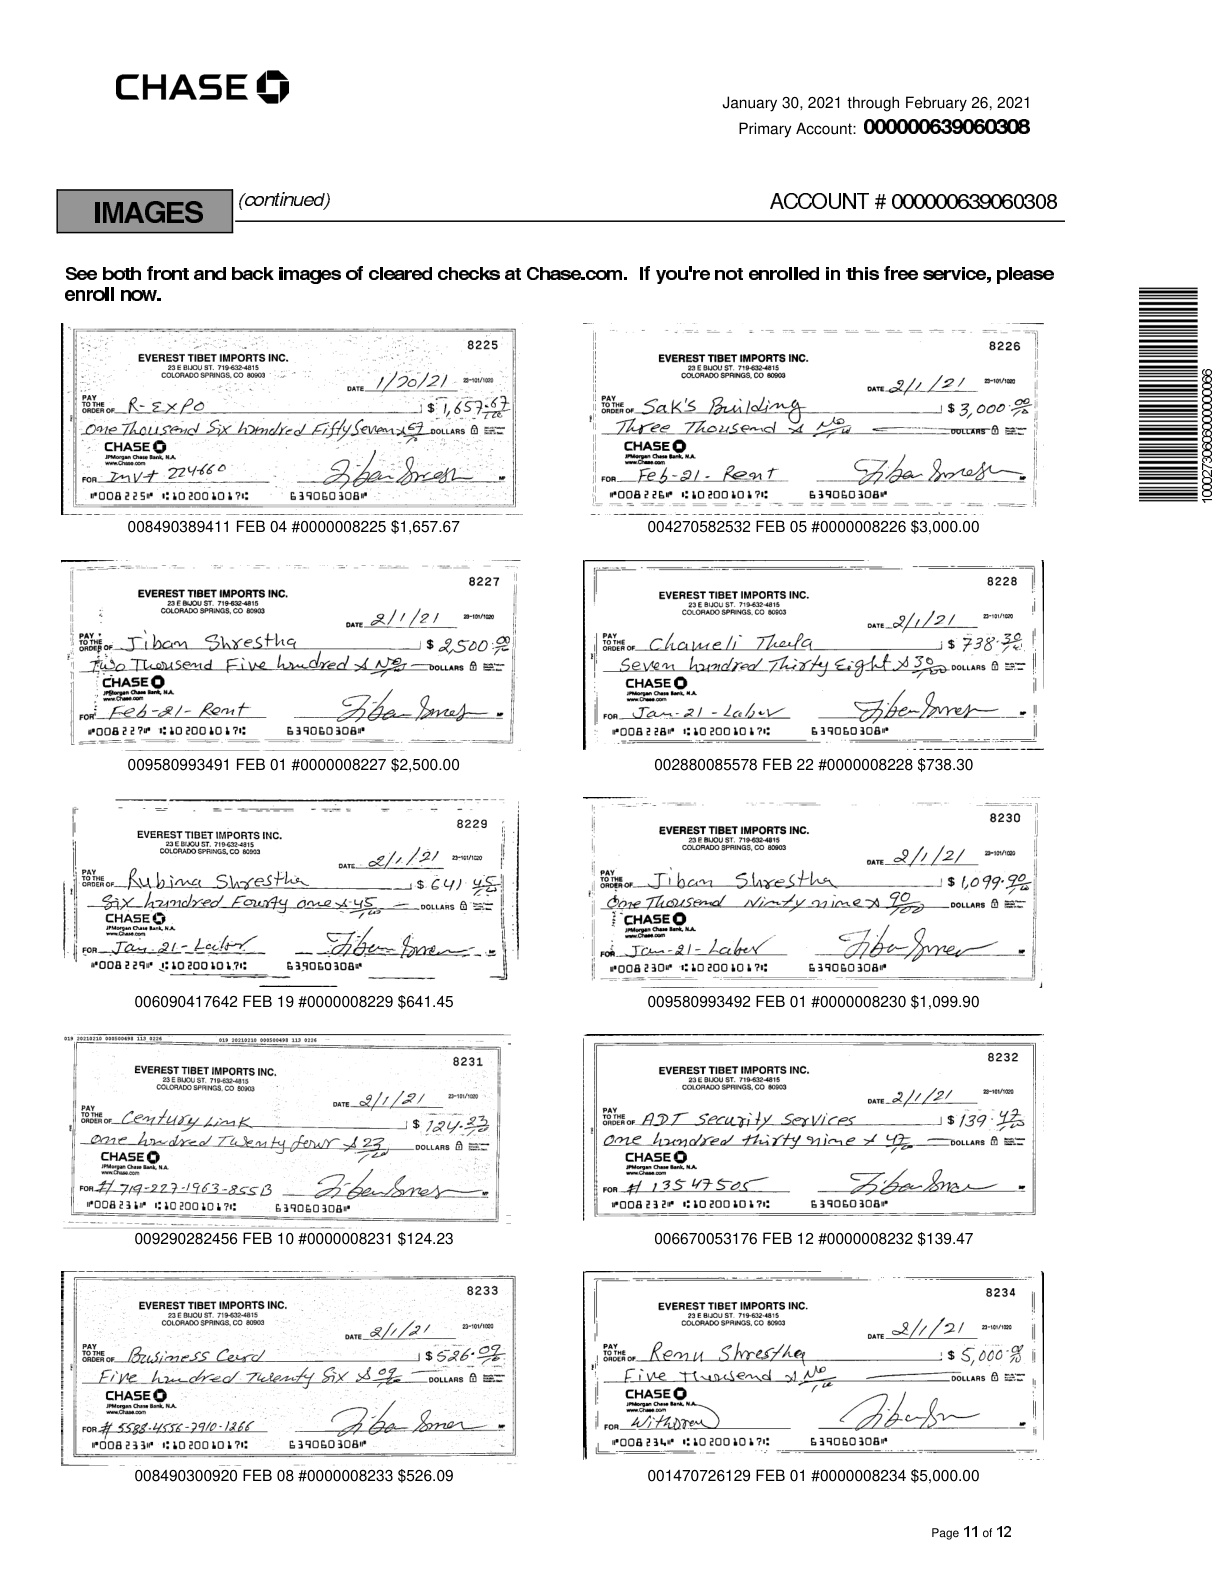 CHASE
January 30, 2021 through February 26, 2021
Primary Account: 000000639060308
IMAGES (continued) ACCOUNT # 000000639060308
See both front and back images of cleared checks at Chase.com. If you're not enrolled in this free service, please
enroll now.
8225
EVEREST TIBET IMPORTS INC.
23 E BIJOU ST. 719-632-4815
COLORADO SPRINGS, CO 80903
DATE 1/20/21 23-101/1020
PAY
TO THE
ORDER OF R-EXPO $ 1,657.67/100
One Thousand Six hundred Fifty Seven & 67 DOLLARS
CHASE
JPMorgan Chase Bank, N.A.
www.Chase.com
FOR Inv# 224660
⑈008225⑈ ⑆102001017⑆ 639060308⑈
008490389411 FEB 04 #0000008225 $1,657.67
8226
EVEREST TIBET IMPORTS INC.
23 E BIJOU ST. 719-632-4815
COLORADO SPRINGS, CO 80903
DATE 2/1/21 23-101/1020
PAY
TO THE
ORDER OF Sak's Building $ 3,000.00
Three Thousand & No DOLLARS
CHASE
JPMorgan Chase Bank, N.A.
www.Chase.com
FOR Feb-21- Rent
⑈008226⑈ ⑆102001017⑆ 639060308⑈
004270582532 FEB 05 #0000008226 $3,000.00
8227
EVEREST TIBET IMPORTS INC.
23 E BIJOU ST. 719-632-4815
COLORADO SPRINGS, CO 80903
DATE 2/1/21 23-101/1020
PAY
TO THE
ORDER OF Jiban Shrestha $ 2,500.00
Two Thousand Five hundred & No DOLLARS
CHASE
JPMorgan Chase Bank, N.A.
www.Chase.com
FOR Feb-21-Rent
⑈008227⑈ ⑆102001017⑆ 639060308⑈
009580993491 FEB 01 #0000008227 $2,500.00
8228
EVEREST TIBET IMPORTS INC.
23 E BIJOU ST. 719-632-4815
COLORADO SPRINGS, CO 80903
DATE 2/1/21 23-101/1020
PAY
TO THE
ORDER OF Chameli Thela $ 738.30
Seven hundred Thirty Eight & 30/100 DOLLARS
CHASE
JPMorgan Chase Bank, N.A.
www.Chase.com
FOR Jan-21-Labor
⑈008228⑈ ⑆102001017⑆ 639060308⑈
002880085578 FEB 22 #0000008228 $738.30
8229
EVEREST TIBET IMPORTS INC.
23 E BIJOU ST. 719-632-4815
COLORADO SPRINGS, CO 80903
DATE 2/1/21 23-101/1020
PAY
TO THE
ORDER OF Rubina Shrestha $ 641.45/100
Six hundred Fourty one & 45/100 DOLLARS
CHASE
JPMorgan Chase Bank, N.A.
www.Chase.com
FOR Jan-21-Labor
⑈008229⑈ ⑆102001017⑆ 639060308⑈
006090417642 FEB 19 #0000008229 $641.45
8230
EVEREST TIBET IMPORTS INC.
23 E BIJOU ST. 719-632-4815
COLORADO SPRINGS, CO 80903
DATE 2/1/21 23-101/1020
PAY
TO THE
ORDER OF Jiban Shrestha $ 1,099.90/100
One Thousand Ninty nine & 90/100 DOLLARS
CHASE
JPMorgan Chase Bank, N.A.
www.Chase.com
FOR Jan-21-Labor
⑈008230⑈ ⑆102001017⑆ 639060308⑈
009580993492 FEB 01 #0000008230 $1,099.90
019 20210210 000500498 113 0226 019 20210210 000500498 113 0226
8231
EVEREST TIBET IMPORTS INC.
23 E BIJOU ST. 719-632-4815
COLORADO SPRINGS, CO 80903
DATE 2/1/21 23-101/1020
PAY
TO THE
ORDER OF Century Link $ 124.23/100
One hundred Twenty four & 23/100 DOLLARS
CHASE
JPMorgan Chase Bank, N.A.
www.Chase.com
FOR # 719-227-1963-855B
⑈008231⑈ ⑆102001017⑆ 639060308⑈
009290282456 FEB 10 #0000008231 $124.23
8232
EVEREST TIBET IMPORTS INC.
23 E BIJOU ST. 719-632-4815
COLORADO SPRINGS, CO 80903
DATE 2/1/21 23-101/1020
PAY
TO THE
ORDER OF ADT Security Services $ 139.47/100
One hundred thirty nine & 47/100 DOLLARS
CHASE
JPMorgan Chase Bank, N.A.
www.Chase.com
FOR # 13547505
⑈008232⑈ ⑆102001017⑆ 639060308⑈
006670053176 FEB 12 #0000008232 $139.47
8233
EVEREST TIBET IMPORTS INC.
23 E BIJOU ST. 719-632-4815
COLORADO SPRINGS, CO 80903
DATE 2/1/21 23-101/1020
PAY
TO THE
ORDER OF Business Card $ 526.09
Five hundred Twenty Six & 09 DOLLARS
CHASE
JPMorgan Chase Bank, N.A.
www.Chase.com
FOR # 5588-4556-7910-1266
⑈008233⑈ ⑆102001017⑆ 639060308⑈
008490300920 FEB 08 #0000008233 $526.09
8234
EVEREST TIBET IMPORTS INC.
23 E BIJOU ST. 719-632-4815
COLORADO SPRINGS, CO 80903
DATE 2/1/21 23-101/1020
PAY
TO THE
ORDER OF Renu Shrestha $ 5,000.00
Five Thousand & No DOLLARS
CHASE
JPMorgan Chase Bank, N.A.
www.Chase.com
FOR Withdraw
⑈008234⑈ ⑆102001017⑆ 639060308⑈
001470726129 FEB 01 #0000008234 $5,000.00
Page 11 of 12